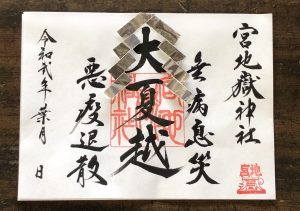 宮地嶽神社
無病息災
大夏越
悪疫退散
令和弐年葉月 日